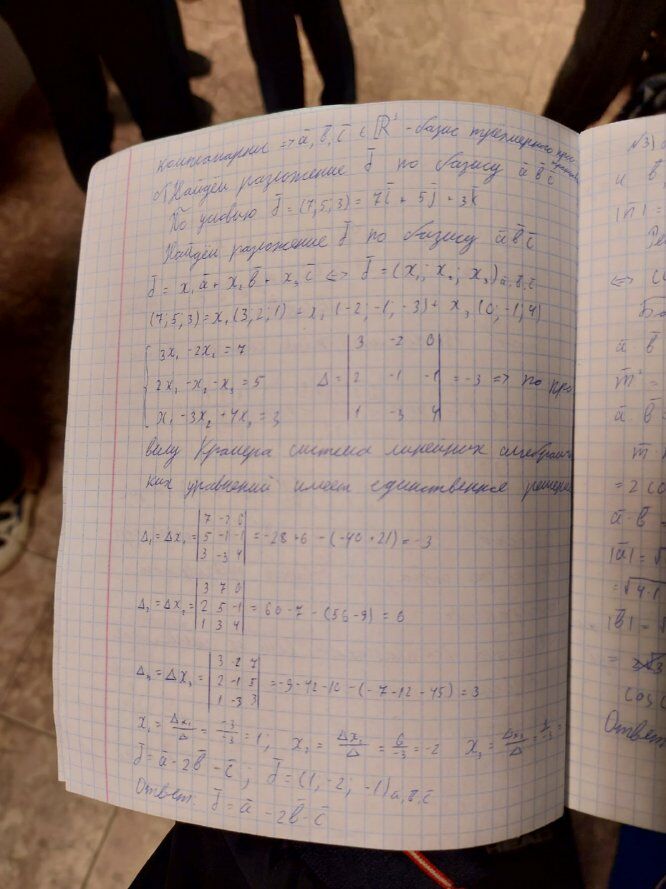 компланарные => a̅, b̅, c̅ ∈ ℝ³ - базис трёхмерного прос
странства
б) Найдём разложение d̅ по базису a̅ b̅ c̅
По условию d̅ = (7; 5; 3) = 7i̅ + 5j̅ + 3k̅
Найдём разложение d̅ по базису a̅ b̅ c̅
d̅ = x₁a̅ + x₂b̅ + x₃c̅ <=> d̅ = (x₁; x₂; x₃)a̅,b̅,c̅
(7; 5; 3) = x₁(3; 2; 1) + x₂(-2; -1; -3) + x₃(0; -1; 4)
{ 3x₁ - 2x₂ = 7
2x₁ - x₂ - x₃ = 5
x₁ - 3x₂ + 4x₃ = 3
Δ = | 3 -2 0 |
| 2 -1 -1 | = -3 => по пра
| 1 -3 4 |
вилу Крамера система линейных алгебраич
ких уравнений имеет единственное решение
Δ₁ = Δx₁ = | 7 -2 0 |
| 5 -1 -1 | = -28 + 6 - (-40 + 21) = -3
| 3 -3 4 |
Δ₂ = Δx₂ = | 3 7 0 |
| 2 5 -1 | = 60 - 7 - (56 - 9) = 6
| 1 3 4 |
Δ₃ = Δx₃ = | 3 -2 7 |
| 2 -1 5 | = -9 - 42 - 10 - (-7 - 12 - 45) = 3
| 1 -3 3 |
x₁ = Δx₁/Δ = -3/-3 = 1; x₂ = Δx₂/Δ = 6/-3 = -2 x₃ = Δx₃/Δ = 3/-3 =
d̅ = a̅ - 2b̅ - c̅; d̅ = (1; -2; -1)a̅,b̅,c̅
Ответ: d̅ = a̅ - 2b̅ - c̅
№3)
и b̅
|n̅| =
Ре
<=>
Ба
a̅ · b̅
m̅² =
a̅ · b̅ =
m̅ ·
= 2 co
a̅ · b̅ =
|a̅| = √
= √4·1
|b̅| = √
=
cos(
Ответ